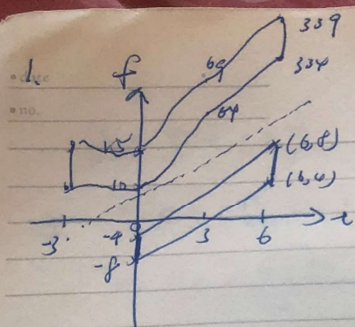 1.
f
339
334
69
64
15
10
(6,8)
(6,4)
-3
3
6
t
-4
-8